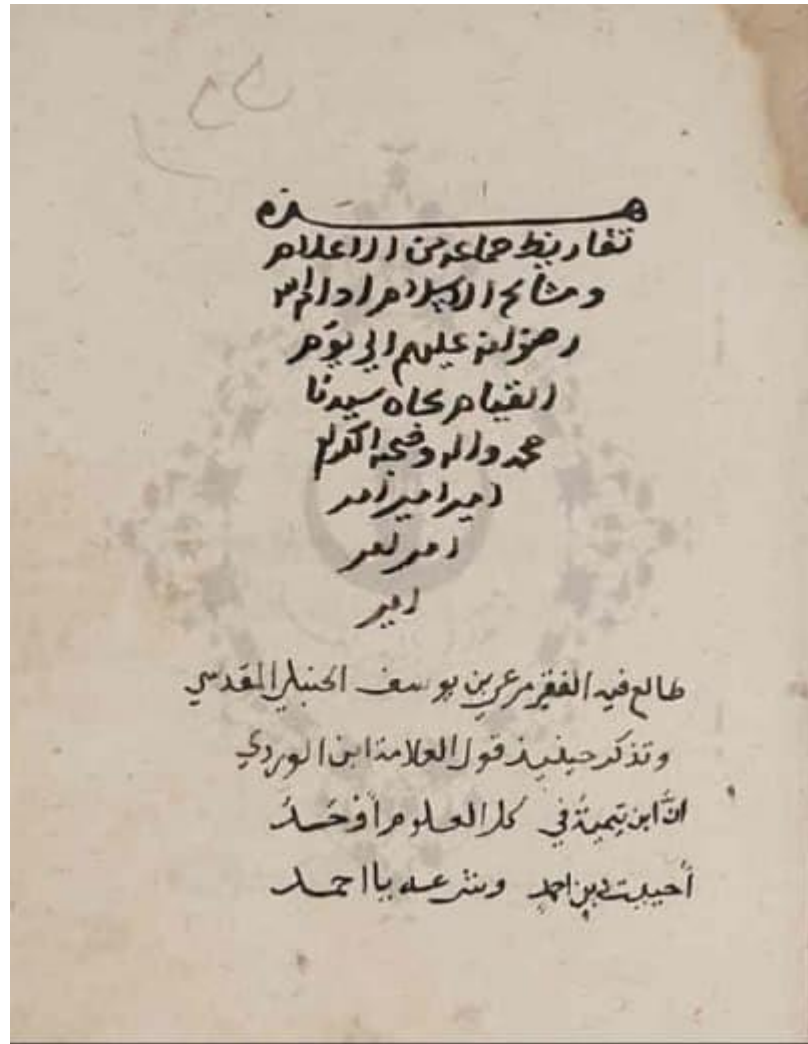 هذه
تقاريظ جماعة من الاعلام
ومشايخ الاسلام ادام الله
رضوانه عليهم الي يوم
القيام بجاه سيدنا
محمد واله وصحبه الكرام
امين امين امين
امين امين
امين
طالع فيه الفقير مرعي بن يوسف الحنبلي المقدسي
وتذكر حينيذ قول العلامة ابن الوردي
انَّ ابن تيميةَ في كل العلوم أوحَدُ
أحييت دين احمد وشرعه يا احمد